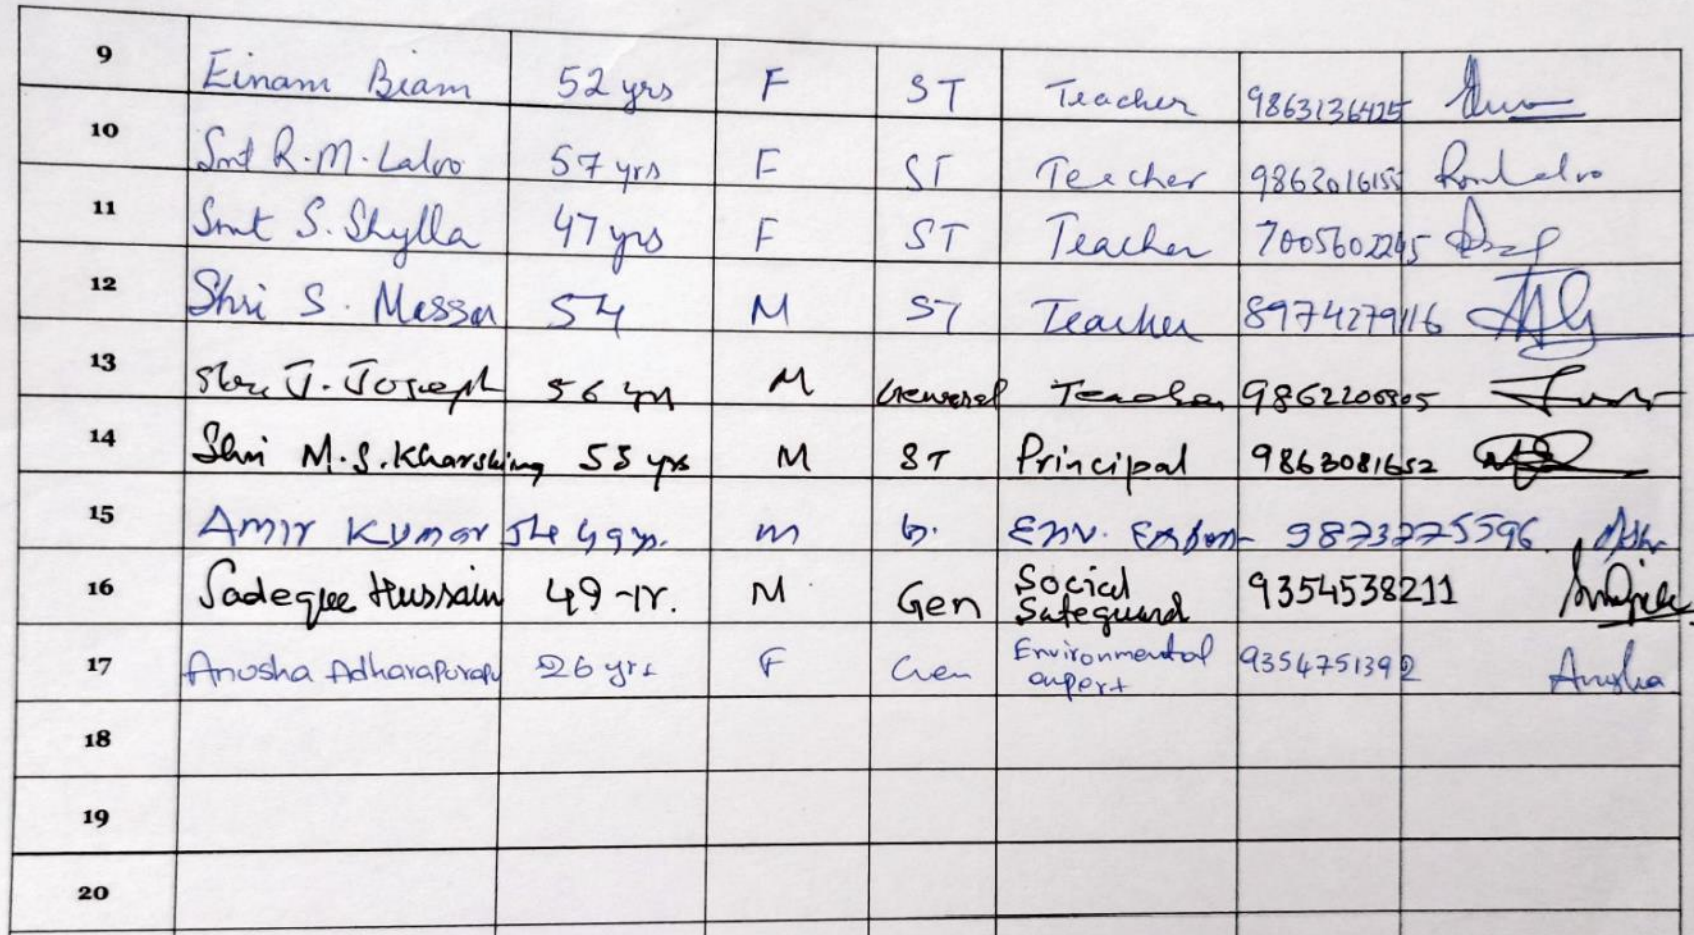 9 Einam Biam 52 yrs F ST Teacher 9863136425
10 Smt R.M. Laloo 57 yrs F ST Teacher 9863016155
11 Smt S. Shylla 47 yrs F ST Teacher 7005602245
12 Shri S. Massar 54 M ST Teacher 8974279116
13 Shri J. Joseph 56 yrs M General Teacher
14 Shri M.S. Kharshiing 55 yrs M ST Principal 9863081652
15 Amir Kumar 49 yr. m G. Env. 9873275596
16 Sadeque Hussain 49-Yr. M Gen Social Safeguard 9354538211
17 Anusha Adharapurapu 26 yrs F Gen Environmental expert 9354751392 Anusha
18
19
20